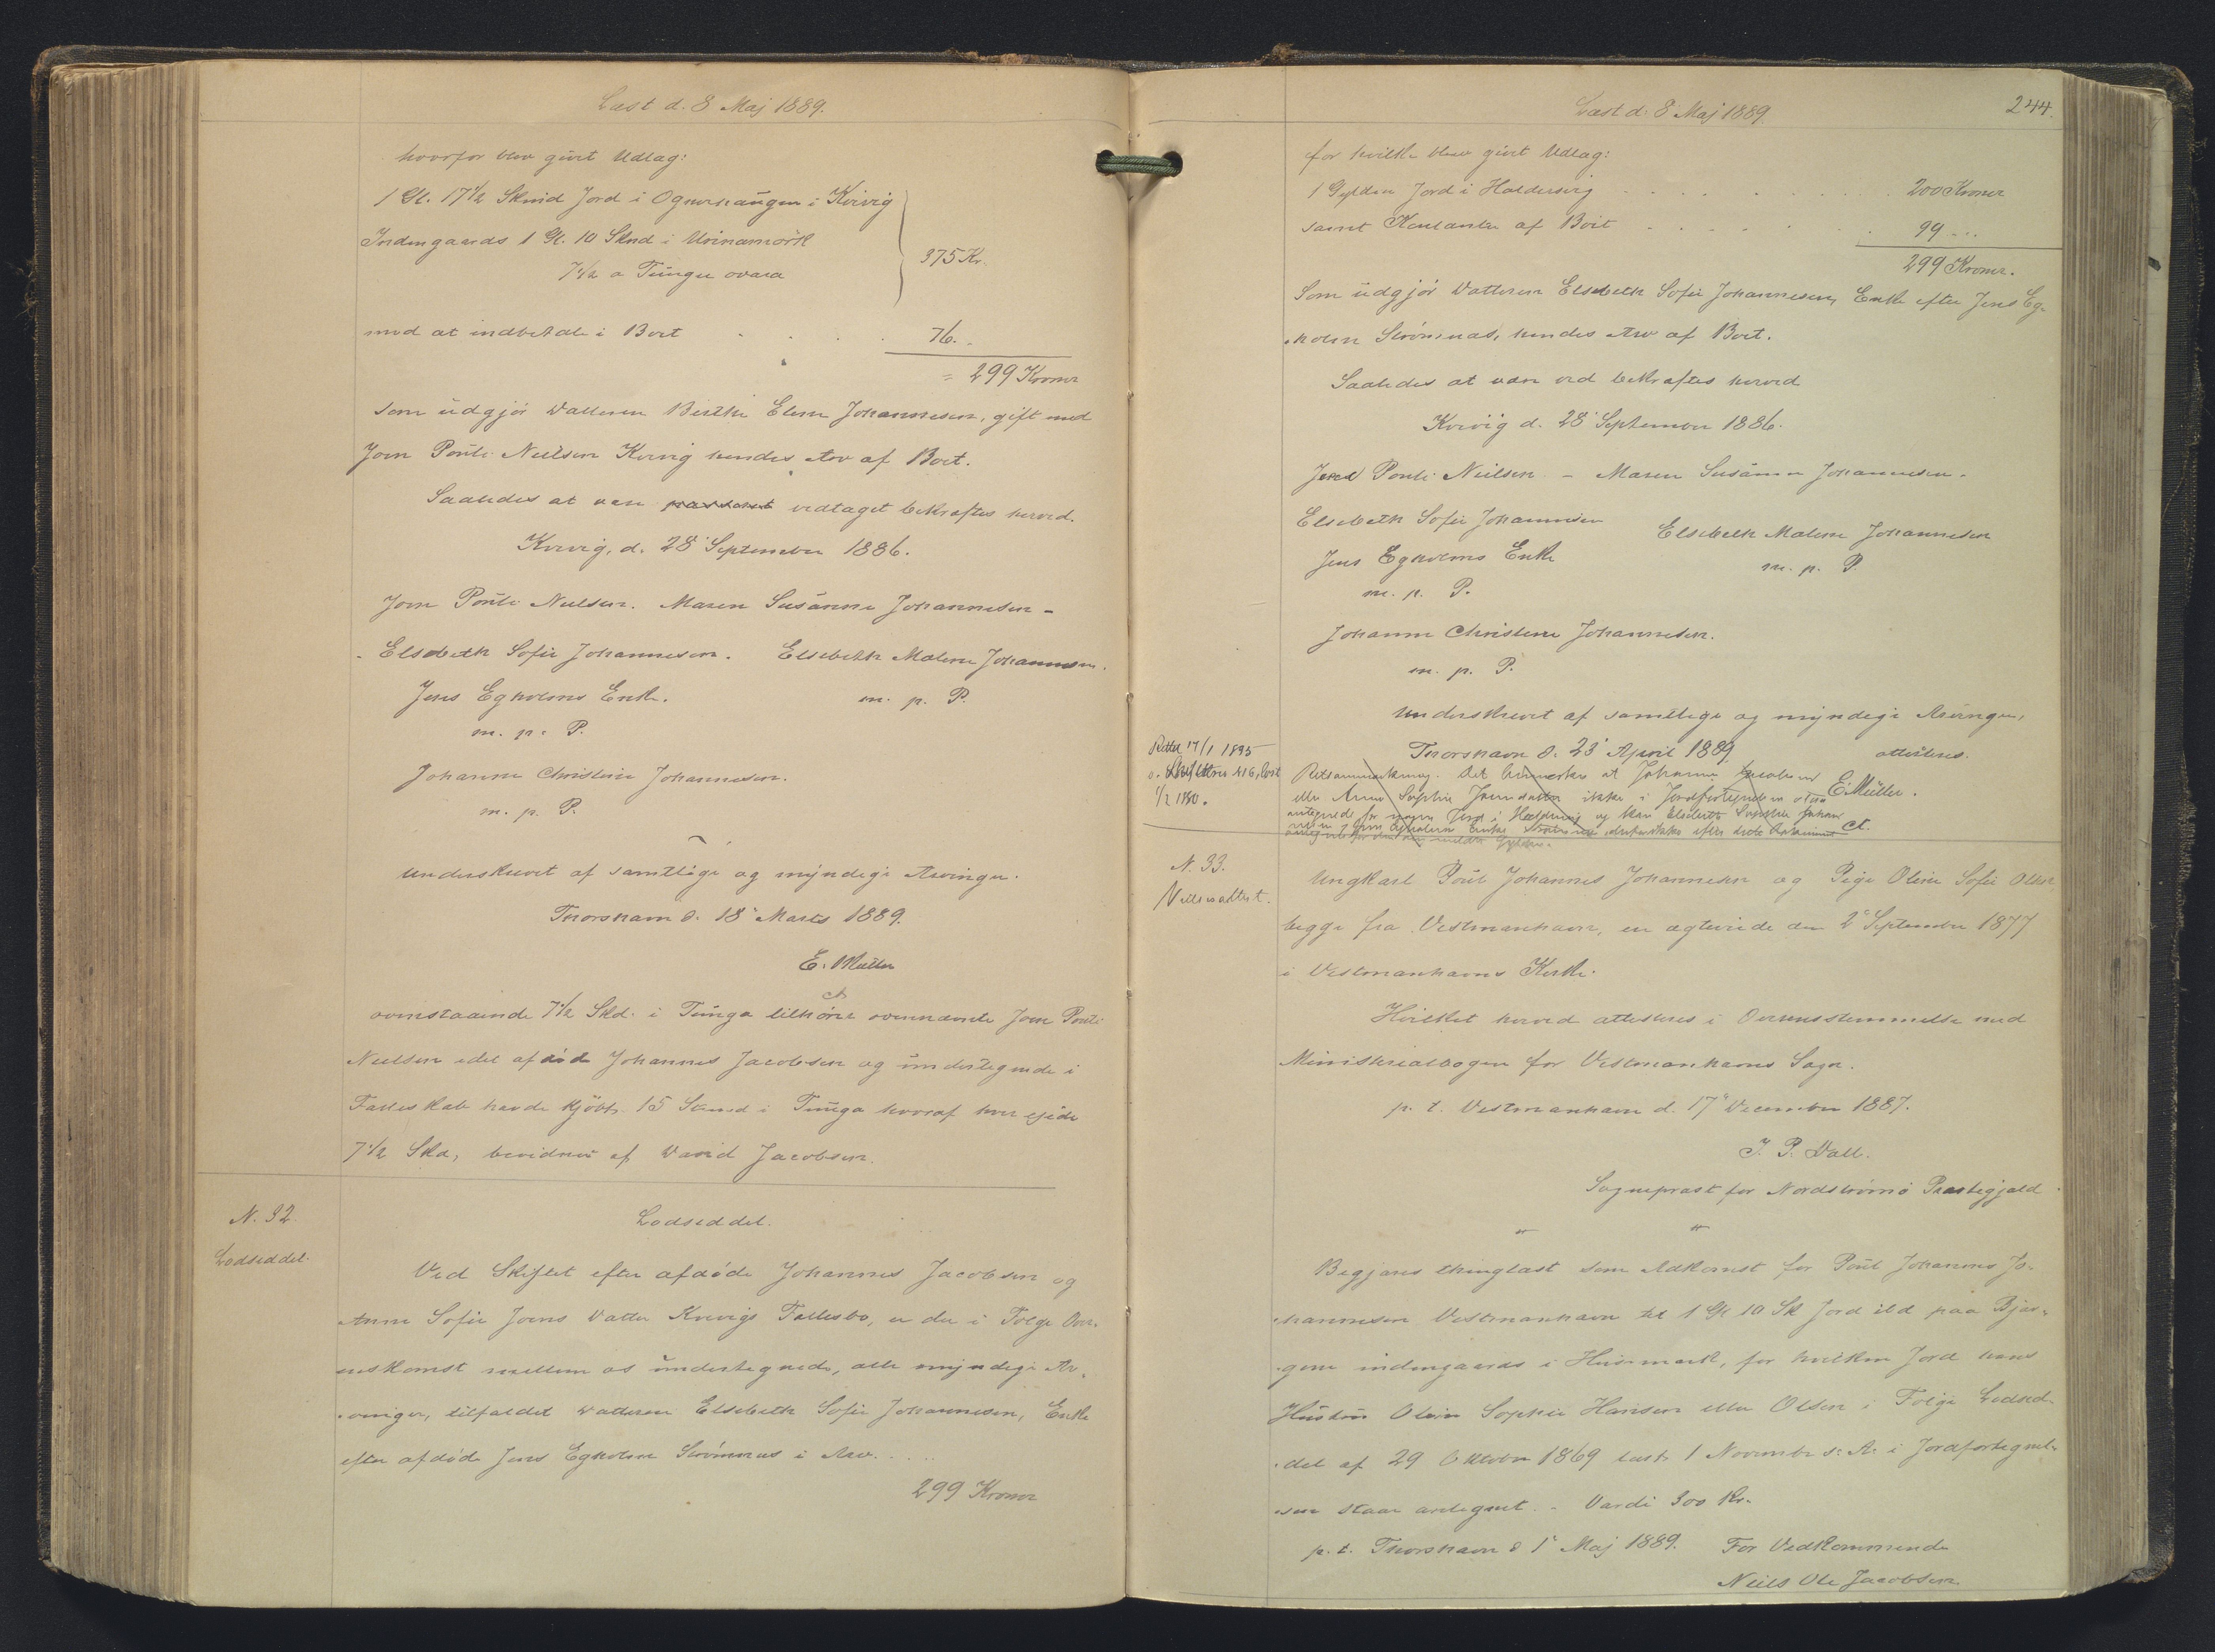 Læst d. 8 Maj 1889.
hvorfor blev givet Udlag:
1 Gl. 17½ Skind Jord i Ognarhaugen i Kvivig
Indengaards 1 Gl. 10 Sknd i
7½ a Tungu ovara
375 Kr.
med at indbetale i Boet . . . . 76. .
= 299 Kroner
som udgjør Datteren Birthe Elene Johannesen, gift med
Joen Pouli Nielsen Kvivig hendes Arv af Boet.
Saaledes at være passeret vedtaget bekræftes herved.
Kvivig, d. 28' September 1886.
Joen Pouli Nielsen. Maren Susanne Johannesen -
Elsebeth Sofie Johannesen. Elsebeth Malene Johannesen.
Jens Egholms Enke. m. p. P.
m. p. P.
Johanne Christine Johannesen.
m. p. P.
Underskrevet af samtlige og myndige Arvinger.
Thorshavn d. 18' Marts 1889.
E. Müller
ovenstaaende 7½ Skd. i Tunga tilhører ovennævnte Joen Pouli
Nielsen idet afdød Johannes Jacobsen og undertegnede i
Fælleskab havde kjøbt 15 Skind i Tunga hvoraf hver ejede
7½ Skd, bevidner af David Jacobsen.
N. 32.
Lodseddel.
Lodseddel.
Ved Skiftet efter afdøde Johannes Jacobsen og
Anne Sofie Joens Datter Kvivigs Fællesbo, er der i Følge Over-
enskomst mellem os undertegnede, alle myndige Ar-
vinger, tilfaldet Datteren Elsebeth Sofie Johannesen, Enke
efter afdøde Jens Egholm Strømnæs i Arv. . . . .
299 Kroner
Læst d. 8 Maj 1889.
244.
for hvilke blev givet Udlag:
1 Gylden Jord i Haldersvig . . . . . . . 200 Kroner
samt Contanter af Boet . . . . . . 99 - ..
299 Kroner.
Som udgjør Datteren Elsebeth Sofie Johannesen, Enke efter Jens Eg-
holm Strømnæs, hendes Arv af Boet.
Saaledes at være ved bekræftes herved
Kvivig d. 28' September 1886.
Joen Pouli Nielsen - Maren Susanne Johannesen.
Elsebeth Sofie Johannesen Elsebeth Malene Johannesen
Jens Egholms Enke m. p. P.
m. p. P.
Johanne Christine Johannesen.
m. p. P.
Underskrevet af samtlige og myndige Arvinger,
Thorshavn d. 23' April 1889. attesteres.
E. Müller.
Rettet 17/1 1895
416, læst
1/2 1880.
Retsanmærkning. Det bemærkes at Johannes Jacobsen
eller Anne Sophie Joensdatter ikke i Jordfortegnelsen staar
antegnede for nogen Jord i Haldersvig og kan Elsebeth Sophie Johan-
nesen Jens Egholms Enke
N. 33.
Vielsesattest.
Ungkarl Poul Johannes Johannesen og Pige Oline Sofie Olsen
begge fra Vestmanhavn, er ægteviede den 2' September 1877
i Vestmanhavns Kirke.
Hvilket herved attesteres i Overensstemmelse med
Ministerialbogen for Vestmanhavns Sogn.
p. t. Vestmanhavn d. 17' December 1887.
J. P. Dall.
Sognepræst for Nordstrømø Præstegjæld
Begjæres thinglæst som Adkomst for Poul Johannes Jo-
hannesen Vestmanhavn til 1 Gl 10 Sk Jord ibd paa Bjær-
gene indengaards i Husemark, for hvilken Jord hans
Hustru Oline Sophie Hansen eller Olsen i Følge Lodsed-
del af 29 Oktober 1869 læst 1 November s. A. i Jordfortegnel-
sen staar antegnet. - Værdi 300 Kr.
p. t. Thorshavn d 1' Maj 1889. For Vedkommende
Niels Ole Jacobsen